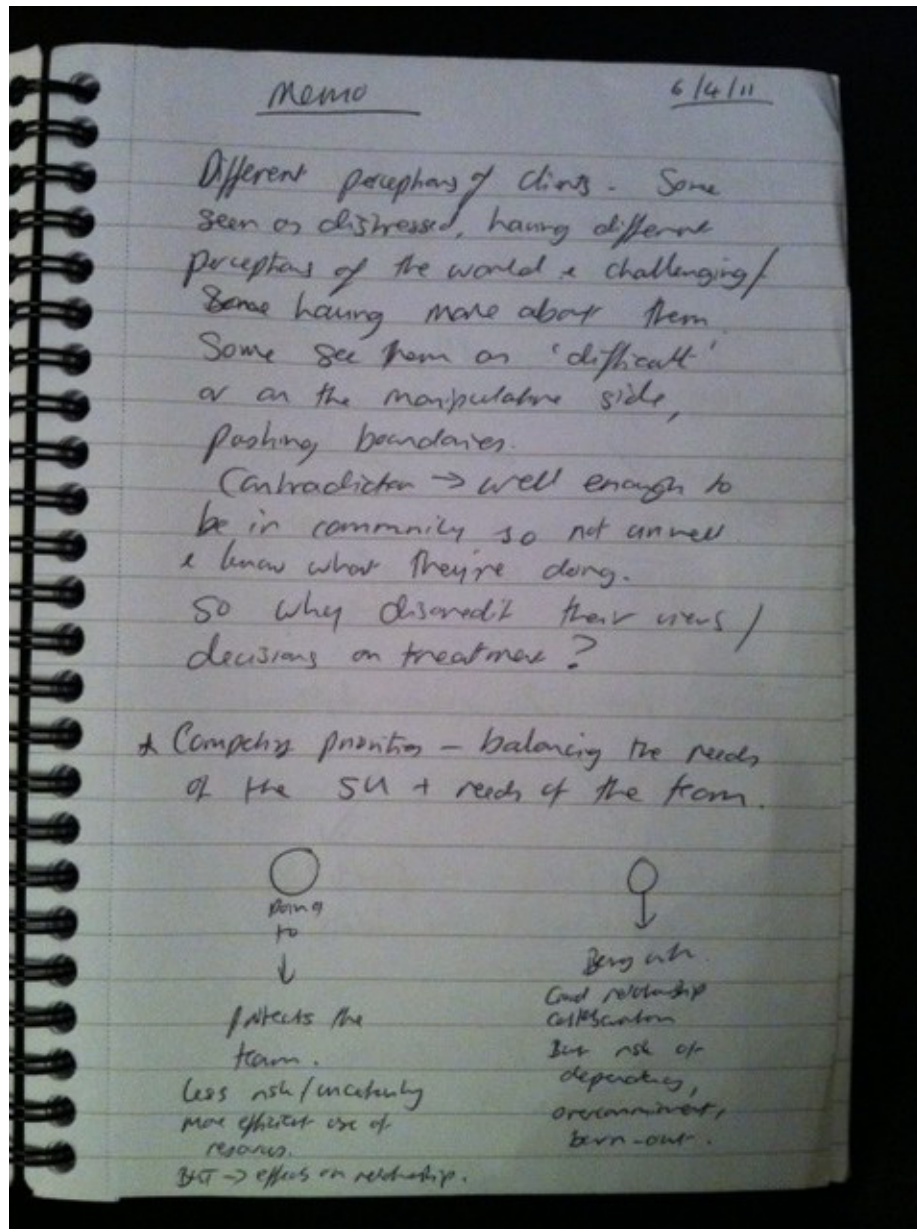 Memo
6/4/11
Different perceptions of clients. Some
seen as distressed, having different
perceptions of the world & challenging/
Some having more about them.
Some see them as 'difficult'
or on the manipulative side,
pushing boundaries.
Contradiction → well enough to
be in community so not unwell
& know what they're doing.
So why discredit their views/
decisions on treatment?
* Competing priorities - balancing the needs
of the SU + needs of the team.
Doing
to
↓
protects the
team.
Less risk/uncertainty
more efficient use of
resources.
BUT → effects on relationship.
↓
Being with.
Good relationship
collaboration
But risk of
dependency,
overcommitment,
burn-out.